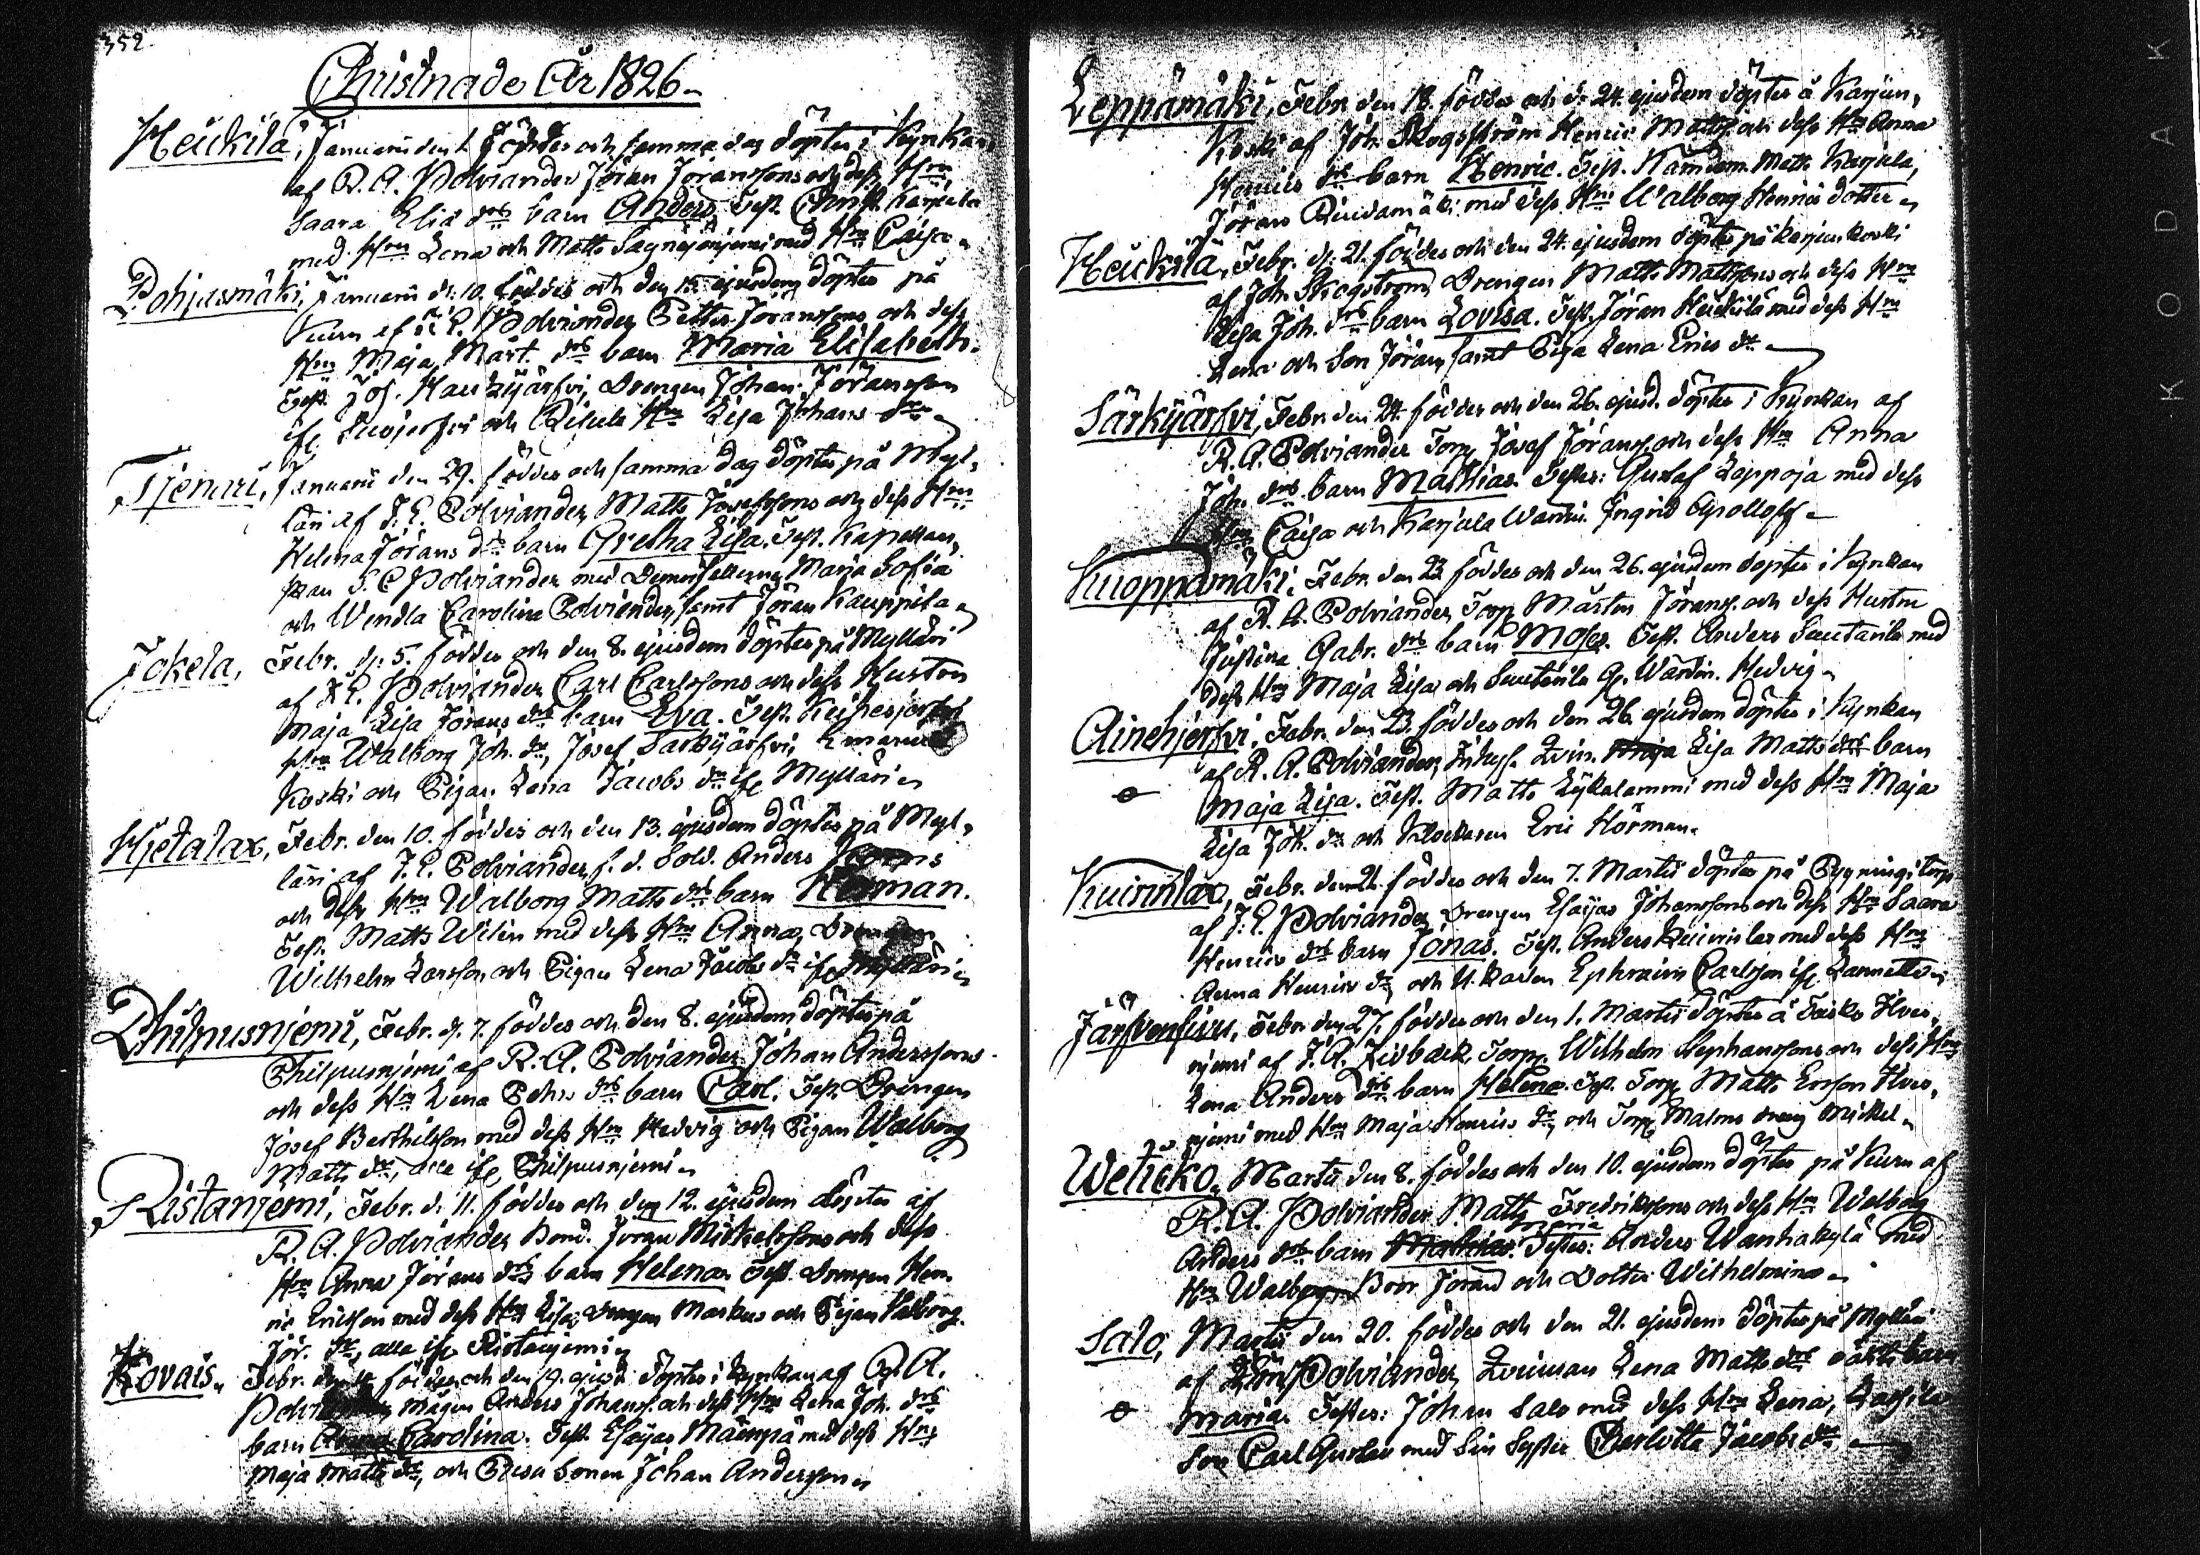 352
Christnade År 1826.
Heickilä, Januarii den 1. föddes och samma dag döptes i Kyrkan
af R. A. Polviander Jöran Joranssons och dess Hru
Saara Eliæ drs barn Anders. Test. Christ. Karjula
med Hru Lena och Matts med Hru Caisa
Pohjasmäki, Januarii d. 10. föddes och den ejusdem döptes på
Kuru af J. E. Polviander Petter Joranssons och dess
Hru Maja Märt. drs barn Maria Elisabeth.
Test. Jos. Haukijärfvi, Drengen Johan Joransson
ifr. och Hru Lisa Johans dr
Tjemri, Januarii den 29. föddes och samma dag döptes på Myl-
läri af J. E. Polviander, Matts Josefssons och dess Hru
Helena Jörans drs barn Gretha Lisa. Test. Kapellans
frun S. C. Polviander med Demoisellerna Maria Sofia
och Wendla Carolina Polviander, samt Jöran Kauppila
Jokela, Febr. d. 5. föddes och den 8. ejusdem döptes på Mylläri
af J. E. Polviander Carl Carlssons och dess Hustru
Maja Lisa Jörans drs barn Eva. Test. Keihesjärfvi
Hru Walborg Joh. dr, Josef Särkijärfvi,
Koski och Pigan Lena Jacobs dr ifr. Mylläri
Hjetalax, Febr. den 10. föddes och den 13. ejusdem döptes på Myl-
läri af J. E. Polviander, f. d. Sold. Anders
och dess Hru Walborg Matts drs barn Herman.
Test. Matts Wilén med dess Hru Anna, Drengen
Wilhelm Larsson och Pigan Lena Jacobs dr ifr. Mylläri
Philpusnjemi, Febr. d. 7. föddes och den 8. ejusdem döptes på
Philpusnjemi af R. A. Polviander Johan Anderssons
och dess Hru Lena Pehrs drs barn Carl. Test. Drengen
Josef Berthilsson med dess Hru Hedvig och Pigan Walborg
Matts dr, alla ifr. Philpusnjemi
Ristanjemi, Febr. d. 11. föddes och den 12. ejusdem döptes af
R. A. Polviander Bond. Jöran Mickelssons och dess
Hru Anna Jörans drs barn Helena. Test. Drengen Hen-
ric Ericsson med dess Hru Lisa, Drengen Markus och Pigan Valborg
Jör. dr, alla ifr. Ristanjemi
Kovais, Febr. föddes och den 19. ejusd. döptes i Kyrkan af R. A.
Polviander, mågen Anders Johanss. och dess Hru Lena Joh. drs
barn Anna Carolina. Test. Esaias Mäenpä med dess Hru
Maja Matts dr, och Sonen Johan Andersson
Leppämäki, Febr. den 18. föddes och d. 24. ejusdem döptes å Karjun-
Koski af Joh. Skogström Henric Mattss. och dess Hru Anna
Henrics drs barn Henric. Test. Nämdem. Matts Karjula,
Jöran med dess Hru Walborg Henrics dotter
Heickilä, Febr. d. 21. föddes och den 24. ejusdem döptes på Karjunkoski
af Joh. Skogström, Drengen Matts Mattssons och dess Hru
Lisa Joh. drs barn Lovisa. Test. Jöran Heickilä med dess Hru
Lena och Son Jöran, samt Piga Lena Erics dr
Särkijärfvi, Febr. den 24. föddes och den 26. ejusd. döptes i Kyrkan af
R. A. Polviander Torp. Josef Joranss. och dess Hru Anna
Joh. drs barn Mathias. Testes: Gustaf Leppoja med dess
Hru Caisa och Karjula Wärdin. Ingrid Apolloff
Kuoppamäki, Febr. den 23. föddes och den 26. ejusdem döptes i Kyrkan
af R. A. Polviander, Torp. Mårten Joranss. och dess Hustru
Justina Gabr. drs barn Moses. Test. Anders med
dess Hru Maja Lisa och Wärdin. Hedvig
Ainehjerfvi, Febr. den 23. föddes och den 26. ejusdem döptes i Kyrkan
af R. A. Polviander, Inhys. Qvin. Lisa Matts drs barn
Maja Lisa. Test. Matts Lykalammi med dess Hru Maja
Lisa Joh. dr och Klockaren Eric Hörman.
Kuivislax, Febr. den 21. föddes och den 7. Martii döptes på Bygningstorp
af J. E. Polviander, Drengen Esaias Johanssons och dess Hru Saara
Henrics drs barn Jonas. Test. Anders Kuivislax med dess Hru
Anna Henrics dr, och Ephraim Carlsson ifr.
Järfvenfuu, Febr. den 27. föddes och den 1. Martii döptes å Hver-
njemi af J. A. Lidbäck, Torp. Wilhelm Stephanssons och dess Hru
Lena Anders drs barn Helena. Test. Torp. Matts Ersson Hver-
njemi med Hru Maja Henrics dr, och Torp. Mickel
Weticko, Martii den 8. föddes och den 10. ejusdem döptes på Kuru af
R. A. Polviander Matts Fredrikssons och dess Hru Walborg
Anders drs barn Maria. Testes: Anders Wanhakylä med
Hru Walborg, Bror Jöran och Dotter Wilhelmina
Salo, Martii den 20. föddes och den 21. ejusdem döptes på Mylläri
af Polviander, Qvinnan Lena Matts drs oäkta barn
Maria. Testes: Johan Salo med dess Hru Lena,
Son Carl Gustav med Sin Syster Charlotta Jacobs dr
KODAK